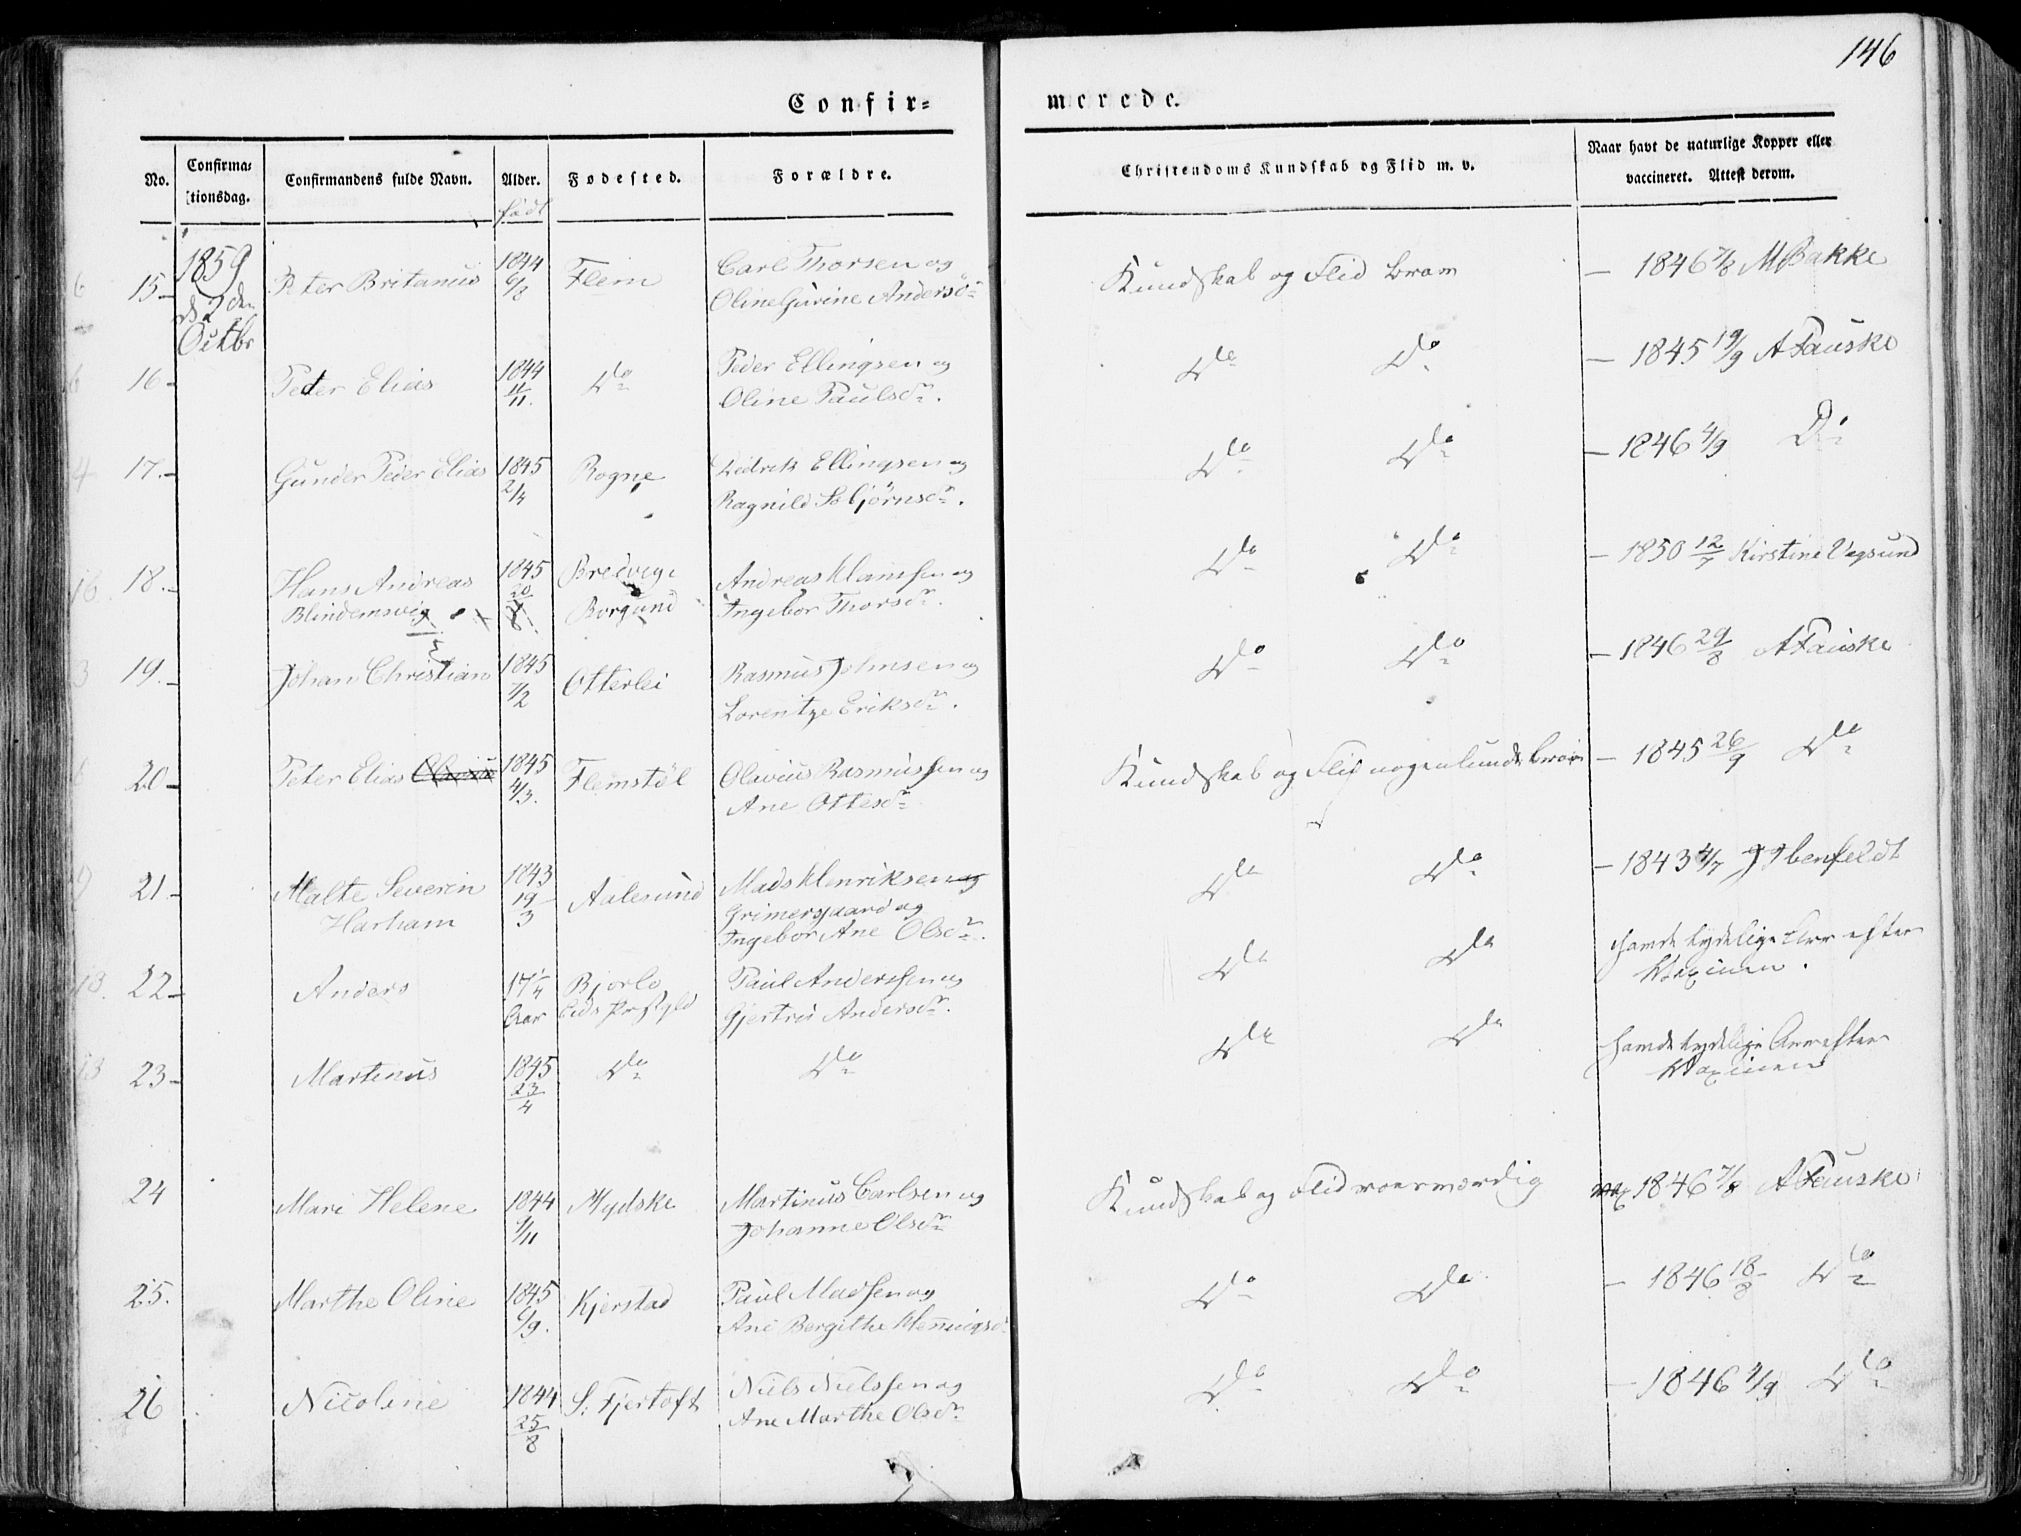 146
Confir= merede.
No. Confirma= tionsdag. Confirmandens fulde Navn. Alder. Fødested. Forældre. Christendoms Kundskab og Flid m. v. Naar havt de naturlige Kopper eller
vaccineret. Attest derom.
født
6 15 1859 Peter Britanius 1844 6/8 Flem Carl Thorsen og Kundskab og Flid bram – 1846 7/8 M Bakke
d 2den Octbr Oline Gurine Andersdr
6 16 Peter Elias 1844 11/11 Do Peder Ellingsen og Do Do – 1845 19/9 A Fauske
Oline Paulsdr.
4 17. Gunder Peder Elias 1845 2/4 Rogne Didrik Ellingsen og Do Do – 1846 4/9 Do
Ragnild Esbjørnsdr.
16 18. Hans Andreas 1845 20/8 Bredvege Andreas Hansen og Do Do – 1850 12/7 Kirstine Vegsund
Blindemsvig Borgund Ingebor Thorsdr.
3 19. Johan Christian 1845 7/2 Otterlei Rasmus Johnsen og Do Do – 1846 29/8 A Fauske
Lorentze Eriksdr.
20 Peter Elias 1845 4/3. Flemstøl Olivius Rasmussen og Kundskab og Flid nogenlunde bram – 1845 26/9 Do
Ane Ottesdr
21 Malte Severin 1843 19/3 Aalesund Mads Henriksen og Do Do – 1843 4/7 J Ibenfeldt
Harham Grimersgaard og
Ingebor Ane Olsdr.
13. 22 Anders 17 1/4 Aar Bjorlo Paul Anderssen og Do Do havde tydelige Arr efter
Eids Præstgld Gjertrud Andersdr. Vaxinen.
13 23 Martinus 1845 23/4 Do Do Do Do havde tydelige Arr efter
Vaxinen
24 Mari Helene 1844 1/11 Mydske Martinus Carlsen og Kundskab og Flid roesværdig vax 1846 7/8 A Fauske
Johanne Olsdr
25. Marthe Oline 1845 6/9. Kjerstad Paul Madsen og Do Do – 1846 18/8 Do
Ane Bergithe Henningsdr
26 Nicoline 1844 25/8 S. Fjertoft Niels Nielssen og Do Do – 1846 4/9 Do
Ane Marthe Olsdr